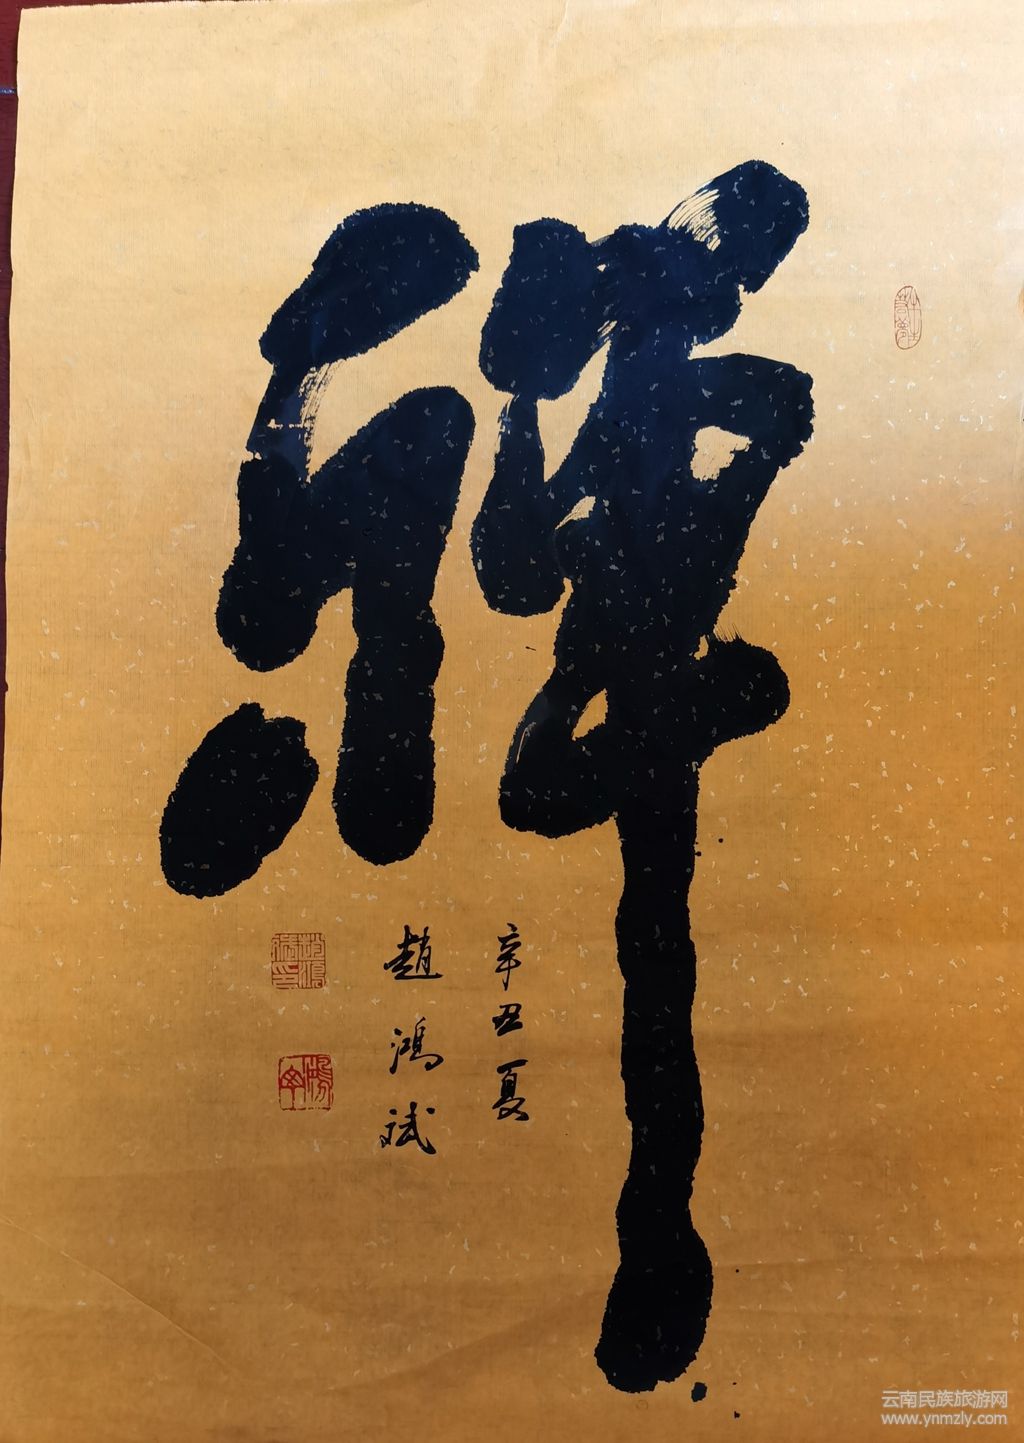 禅
辛丑夏
趙鴻斌
趙鴻斌印
云南民族旅游网
www.ynmzly.com